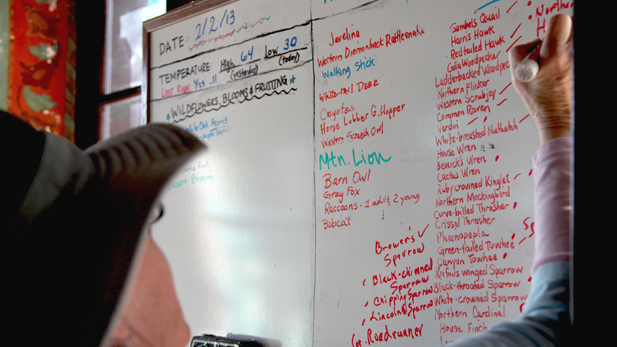 DATE: 2/2/13
TEMPERATURE: High 64 Low 30
(yesterday) (today)
Last Rain
*WILDFLOWERS, BLOOMS & FRUITING*
Javelina
Western Diamondback Rattlesnake
Walking Stick
White-tail Deer
Coyotes
Horse Lubber G.Hopper
Western Screech Owl
Mtn. Lion
Barn Owl
Gray Fox
Raccoons - 1 adult, 2 young
Bobcat
Brewer's
Sparrow
Black-chinned
Sparrow
Chipping Sparrow
Lincoln's Sparrow
Roadrunner
Gambels Quail
Harris Hawk
Red tailed Hawk
Gila Woodpecker
Ladderbacked Woodpec
Northern Flicker
Western Scrub Jay
Common Raven
Verdin
White-breasted Nuthatch
House Wren
Bewicks Wren
Cactus Wren
Ruby crowned Kinglet
Northern Mockingbird
Curve-billed Thrasher
Crissal Thrasher
Phainopepla
Green-tailed Towhee
Canyon Towhee
Rufous winged Sparrow
Black-throated Sparrow
White-crowned Sparrow
Northern Cardinal
House Finch
Northern
H